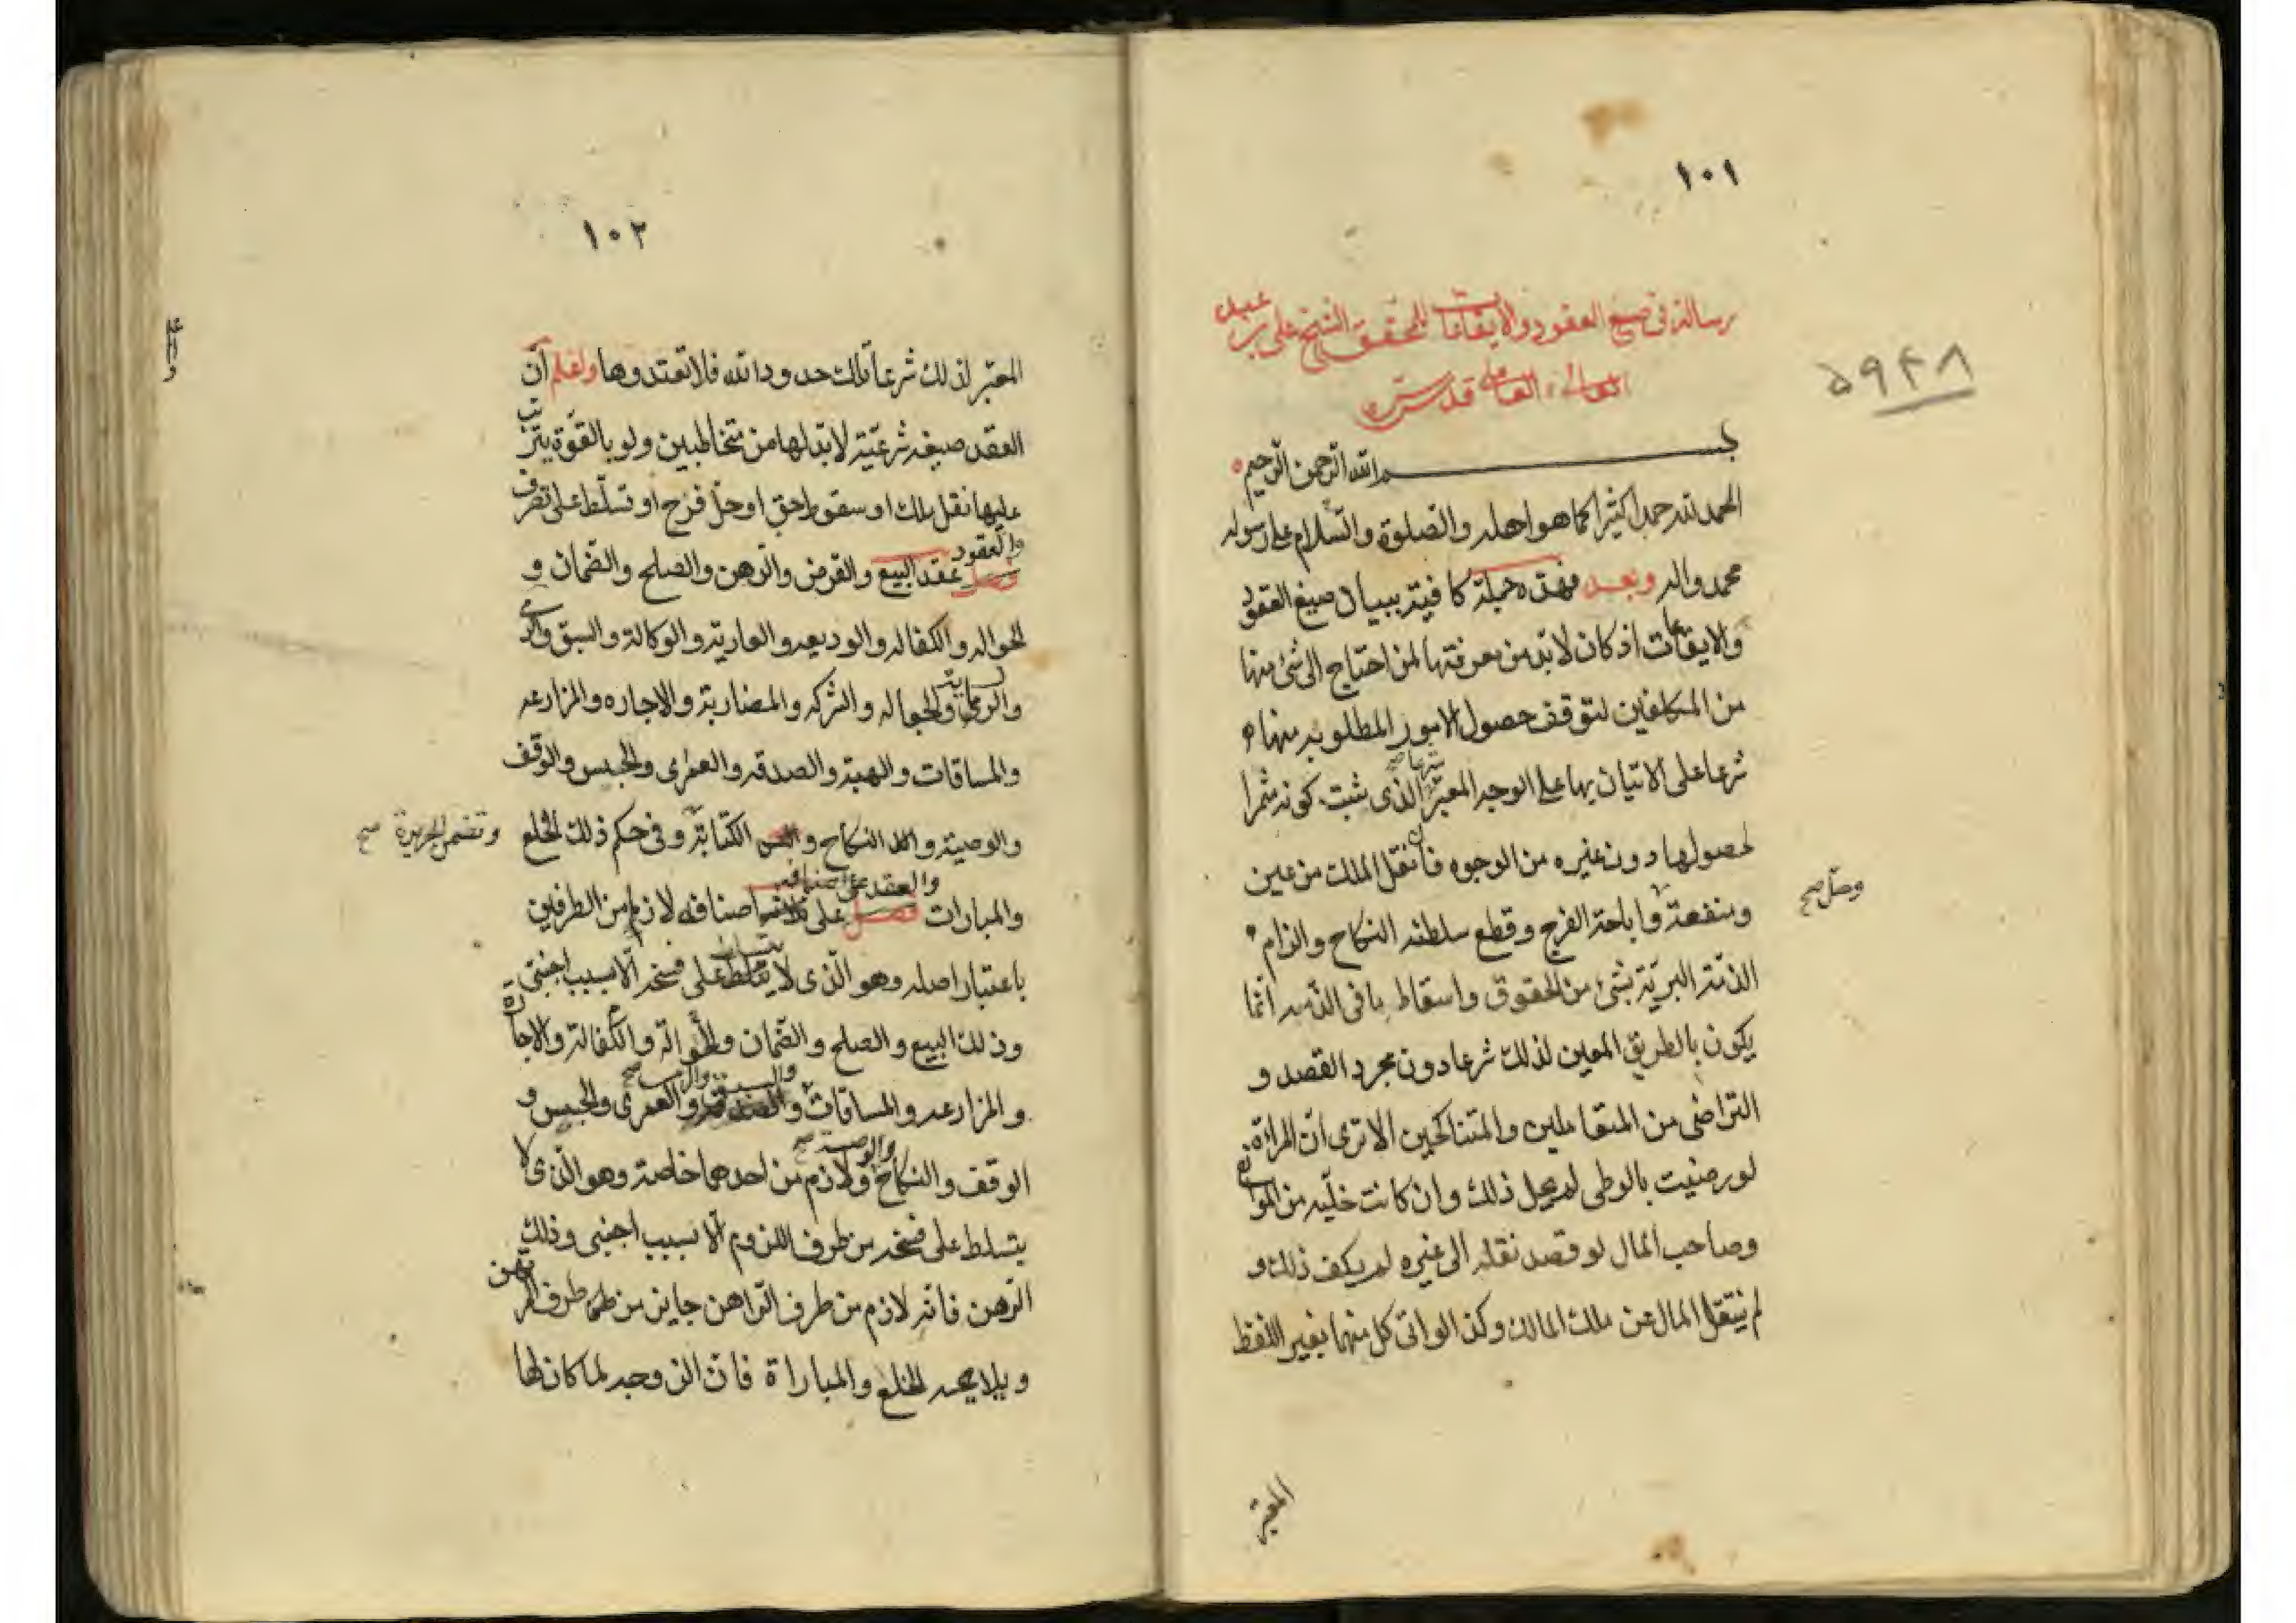 ١٠١
رسالة في صيغ العقود والايقاعات للمحقق الشيخ علي بن عبد
العالي العاملي قدس سره
بسم الله الرحمن الرحيم
الحمد لله حمدا كثيرا كما هو اهله والصلوة والسلام على رسوله
محمد واله وبعد فهذه جملة كافية ببيان صيغ العقود
والايقاعات اذ كان لابد من معرفتها لمن احتاج الى شئ منها
من المكلفين لتوقف حصول الامور المطلوبه منها
شرعا على الاتيان بها على الوجه المعتبر شرعا الذى ثبت كونه مثمرا
لحصولها دون غيره من الوجوه فان نقل الملك من عين
ومنفعة واباحة الفرج وقطع سلطنه النكاح والزام
وحل صح
الذمة البرية بشئ من الحقوق واسقاط ما فى الذمه انما
يكون بالطريق المعين لذلك شرعا دون مجرد القصد و
التراضى من المتعاملين والمتناكحين الا ترى ان المراة
لو رضيت بالوطى لم يحل ذلك وان كانت خليه من الموانع
وصاحب المال لو قصد نقله الى غيره لم يكف ذلك و
لم ينتقل المال عن ملك المالك وكذا لو اتى كل منهما بغير اللفظ
المعتبر
٥٩٤٨
١٠٢
المعتبر لذلك شرعا تلك حدود الله فلا تعتدوها ولعلم ان
العقد صيغه شرعية لابد لها من متخاطبين ولو بالقوة يترتب
عليها نقل ملك او سقوط حق او حل فرج او تسلط على تصرف
والعقود
فصل عقد البيع والقرض والرهن والصلح والضمان و
الحواله والكفاله والوديعه والعارية والوكالة والسبق والرمى
والرماية والجعاله والشركه والمضاربة والاجاره والمزارعه
والمساقات والهبة والصدقه والعمرى والحبس والوقف
والوصية والنكاح والكتابة وفى حكم ذلك الخلع
وتضمن الجريرة صح
والعقد على اصنافه
والمبارات فصل على اصنافه لازم من الطرفين
باعتبار اصله وهو الذى لا يتسلط على فسخه الا بسبب اجنبى
وذلك البيع والصلح والضمان والحوالة والكفالة والاجارة
والمزارعه والمساقات والسبق والعمرى والحبس و
الوقف والنكاح والوصية صح ولازم من احدهما خاصة وهو الذى لا
يتسلط على فسخه من طرف اللزوم الا بسبب اجنبى وذلك
الرهن فانه لازم من طرف الراهن جايز من طرف المرتهن
والخلع والمباراة فان الزوجه لما كان لها